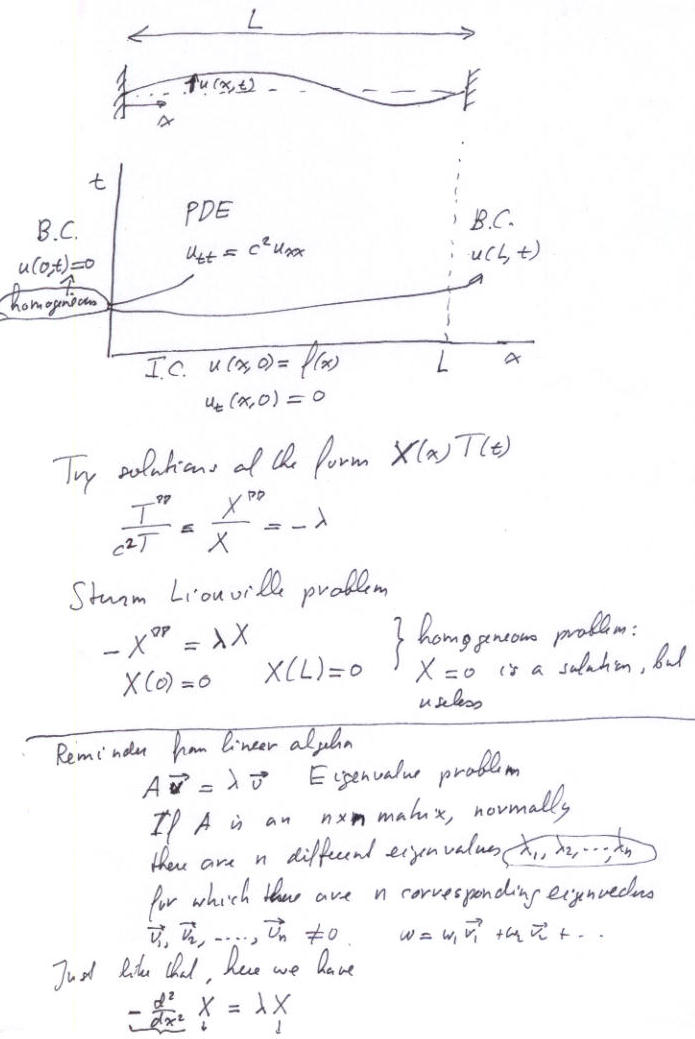 L
u(x,t)
x
t
PDE
B.C.
B.C.
u(0,t)=0
u_tt = c²u_xx
u(L, t)
homogeneous
I.C. u(x,0) = f(x)
L
x
u_t(x,0) = 0
Try solutions of the form X(x)T(t)
T''/c²T = X''/X = -λ
Sturm Liouville problem
-X'' = λX
X(0)=0 X(L)=0
} homogeneous problem:
X=0 is a solution, but
useless
Reminder from linear algebra
A v⃗ = λ v⃗ Eigenvalue problem
If A is an n×n matrix, normally
there are n different eigenvalues λ₁, λ₂, ..., λn
for which there are n corresponding eigenvectors
v⃗₁, v⃗₂, ...., v⃗n ≠0 w = w₁v⃗₁ + w₂v⃗₂ + ...
Just like that, here we have
-d²/dx² X = λX